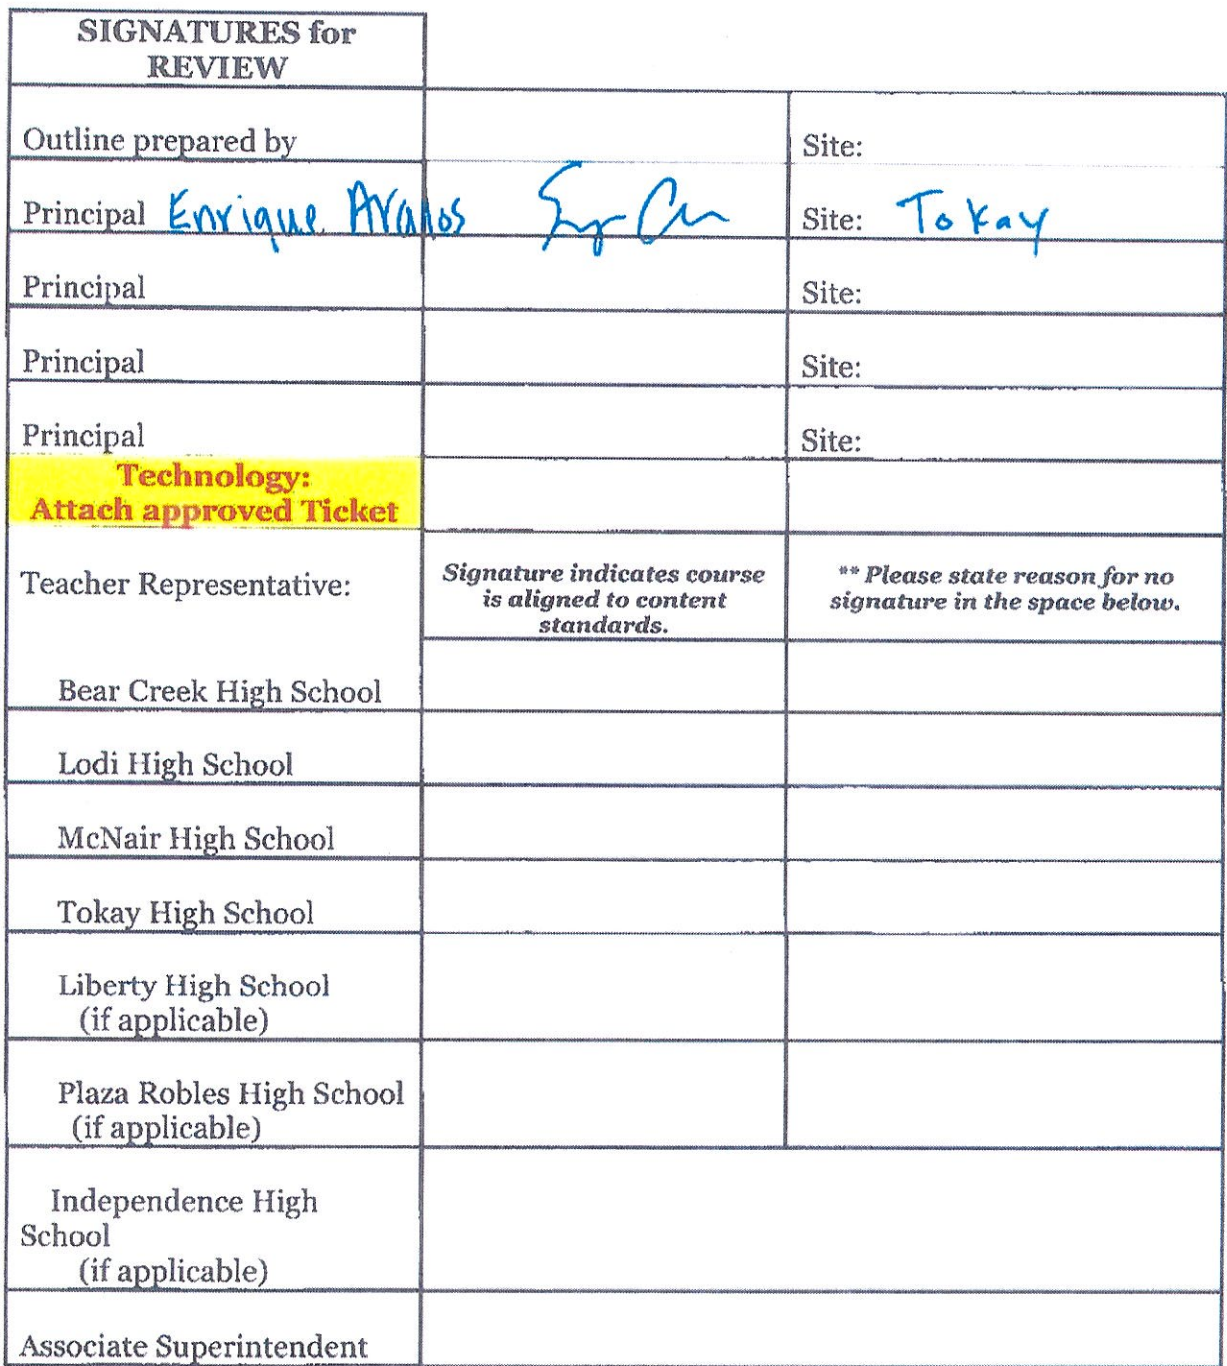 SIGNATURES for
REVIEW
Outline prepared by Site:
Principal Enrique Avalos Site: Tokay
Principal Site:
Principal Site:
Principal Site:
Technology:
Attach approved Ticket
Teacher Representative:
Signature indicates course
is aligned to content
standards.
** Please state reason for no
signature in the space below.
Bear Creek High School
Lodi High School
McNair High School
Tokay High School
Liberty High School
(if applicable)
Plaza Robles High School
(if applicable)
Independence High
School
(if applicable)
Associate Superintendent